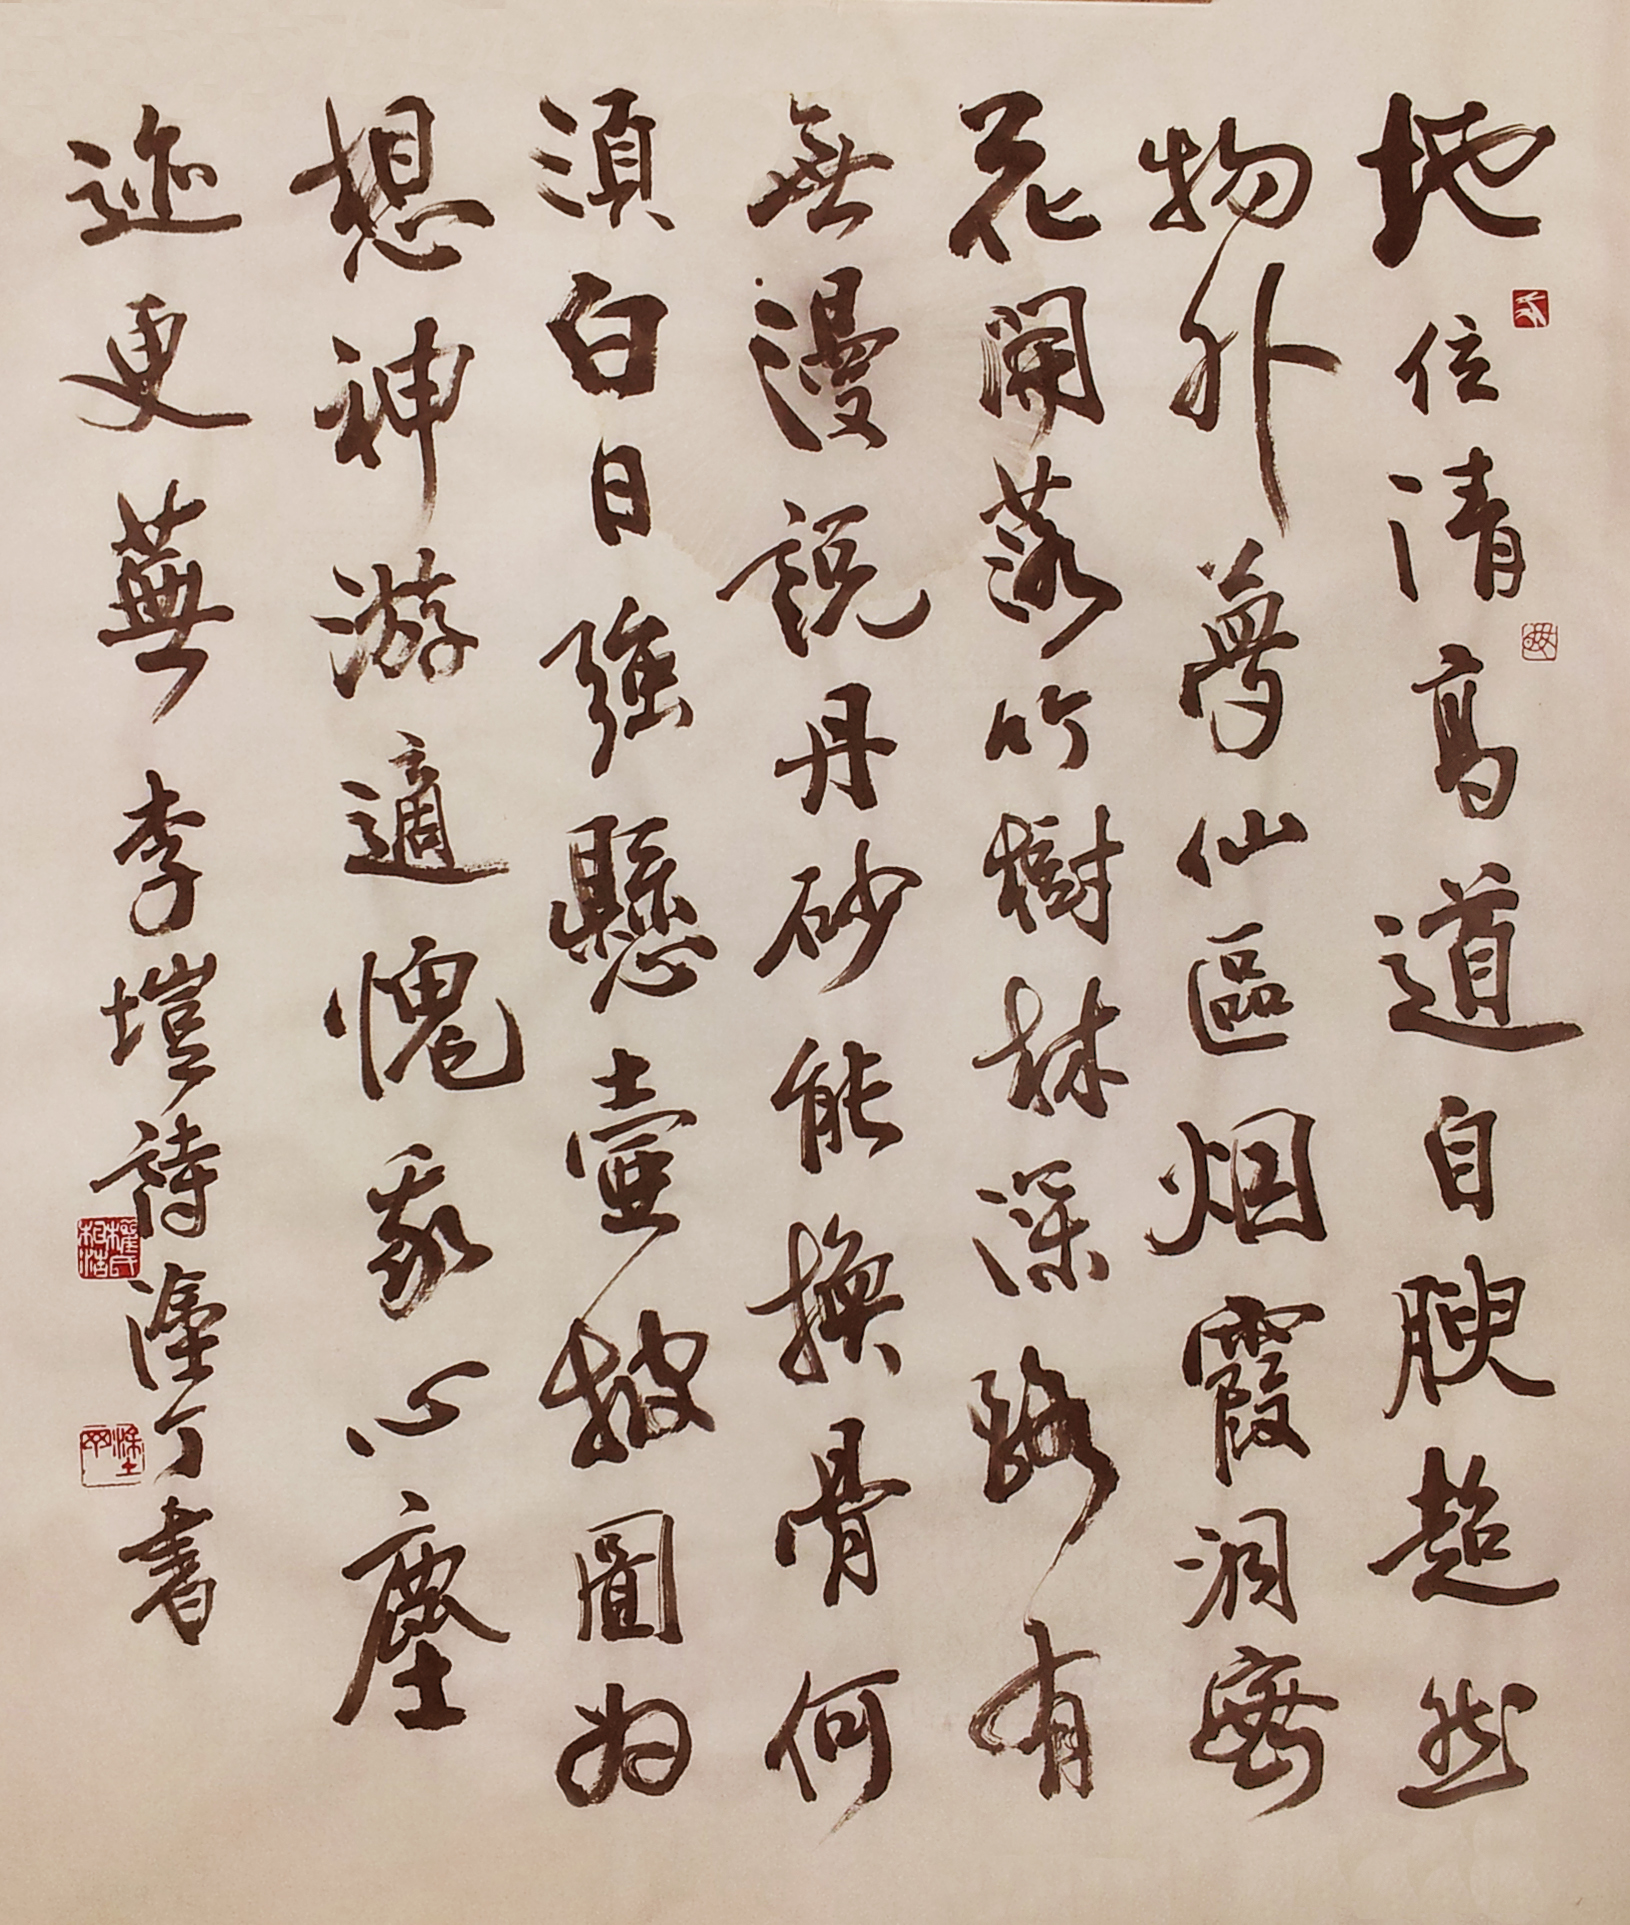 地位清高道自腴超然
物外夢仙區烟霞洞密
花開落竹樹林深路有
無漫說丹砂能換骨何
須白日強懸壺披圖為
想神游適愧我心塵
迹更蕪 李塏詩 丁書